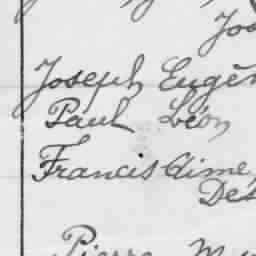 Jos
Joseph Eugèn
Paul Léon
Francis Aime,
Des
Pierre M